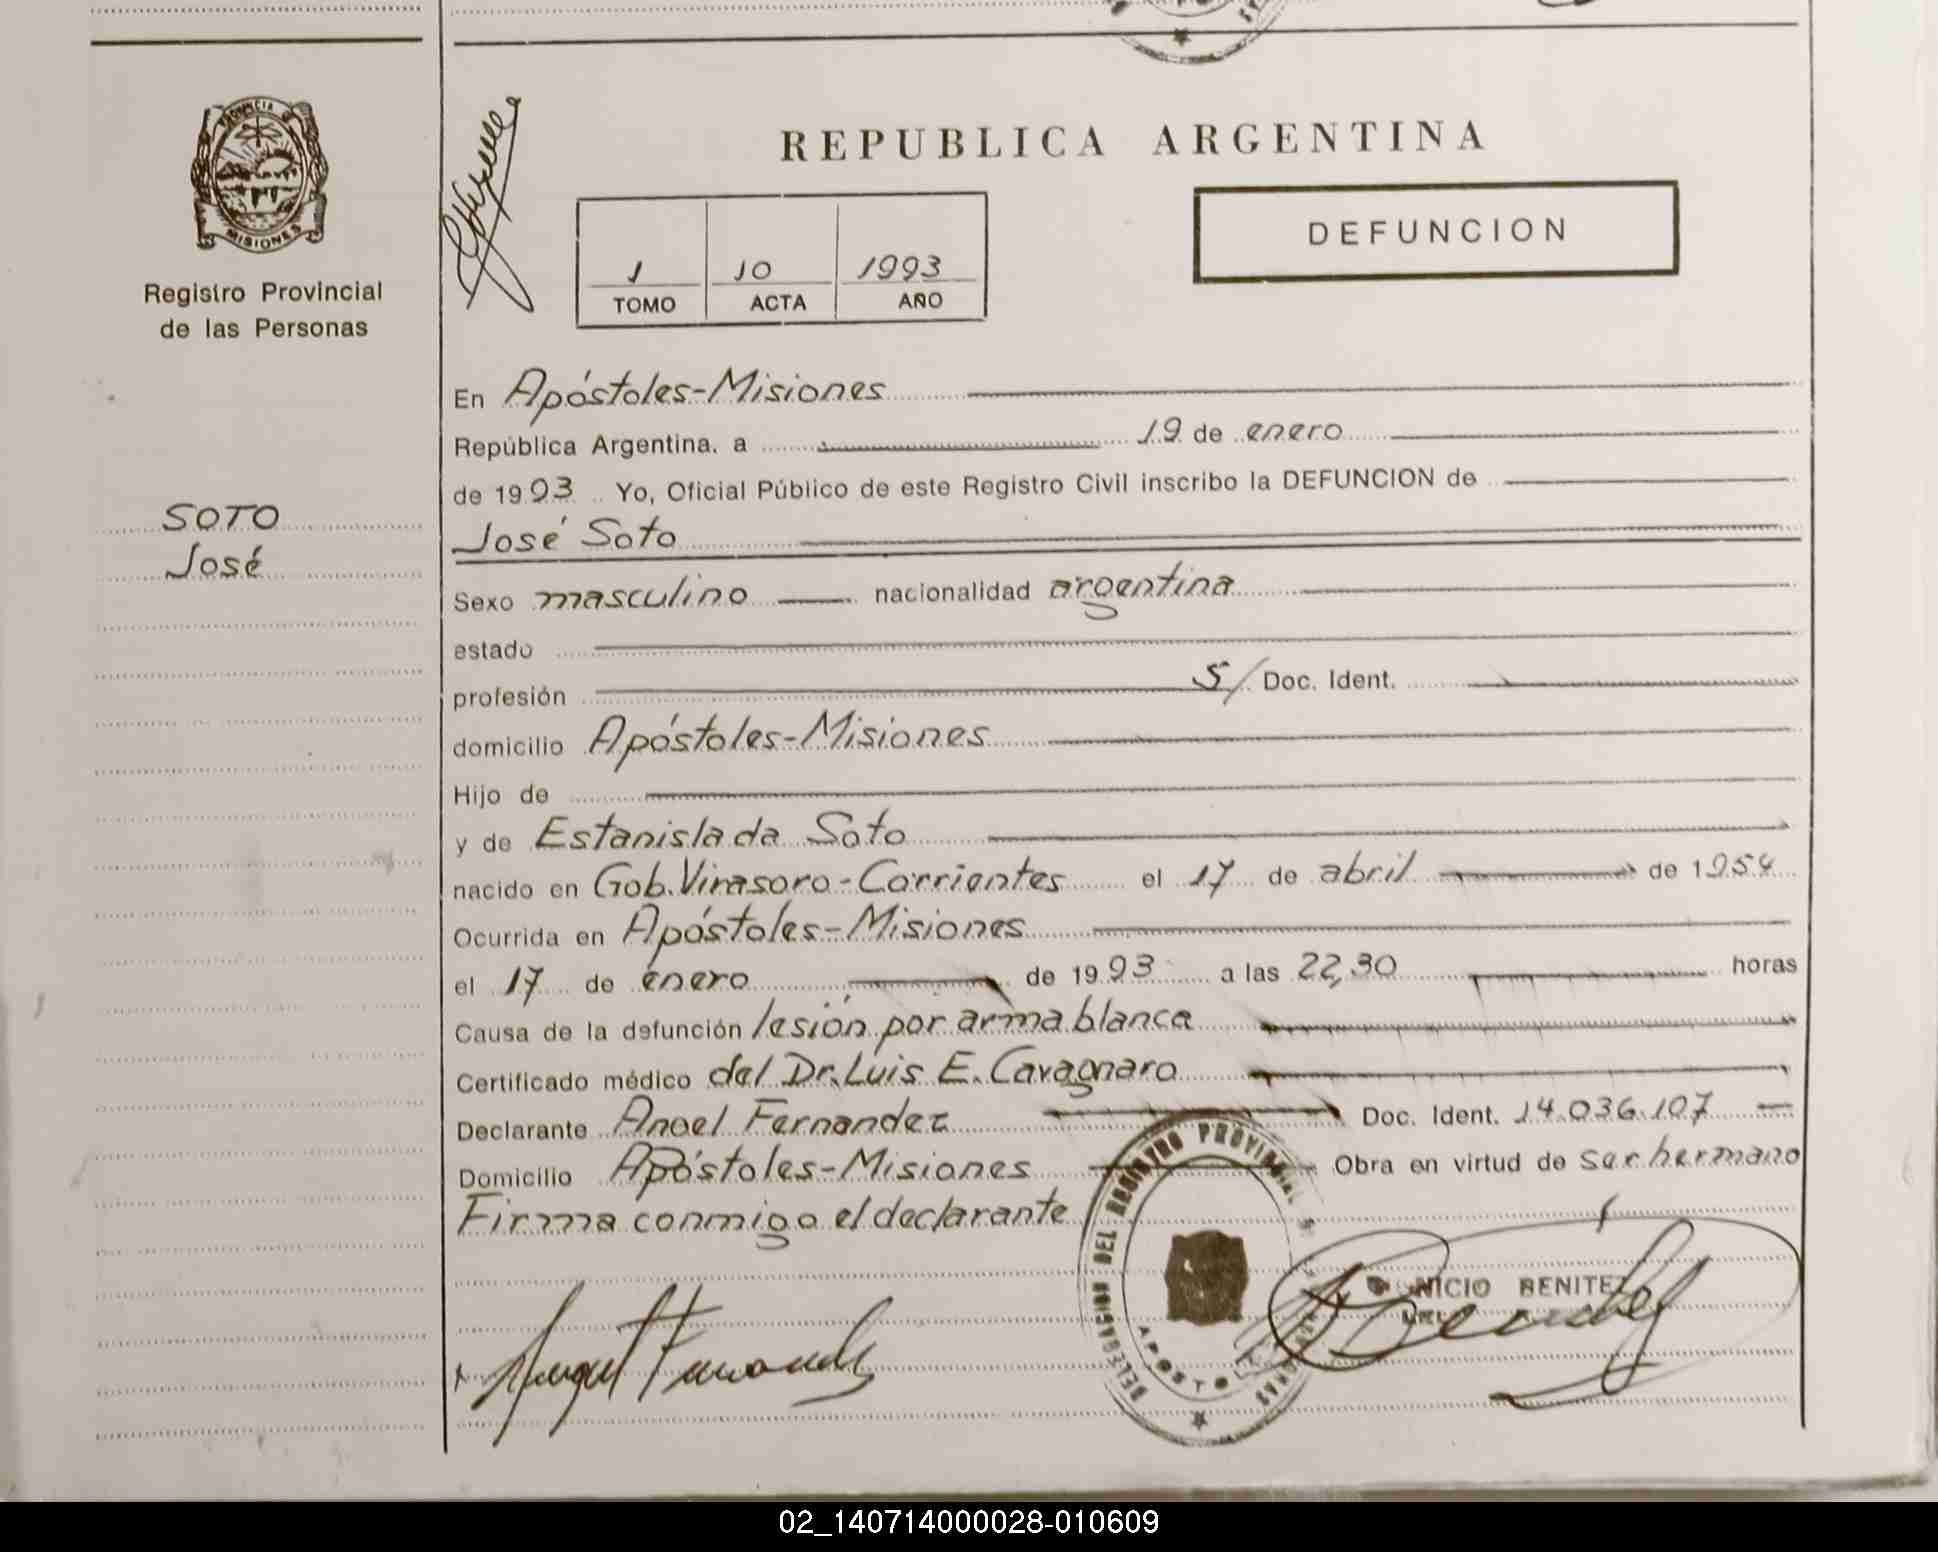 REPUBLICA ARGENTINA
PROVINCIA DE
MISIONES
Registro Provincial
de las Personas
1 10 1993
TOMO ACTA AÑO
DEFUNCION
SOTO
José
En Apóstoles-Misiones
República Argentina, a 19 de enero
de 1993 Yo, Oficial Público de este Registro Civil inscribo la DEFUNCION de
José Soto
Sexo masculino nacionalidad argentina
estado
profesión S/ Doc. Ident.
domicilio Apóstoles-Misiones
Hijo de
y de Estanislada Soto
nacido en Gob. Virasoro-Corrientes el 17 de abril de 1954
Ocurrida en Apóstoles-Misiones
el 17 de enero de 1993 a las 22,30 horas
Causa de la defunción lesión por arma blanca
Certificado médico del Dr. Luis E. Cavagnaro
Declarante Angel Fernandez Doc. Ident. 14.036.107
Domicilio Apóstoles-Misiones Obra en virtud de ser hermano
Firma conmigo el declarante
DELEGACION DEL REGISTRO PROVINCIAL
APOSTOLES
BENITEZ
Angel Fernandez
02_140714000028-010609